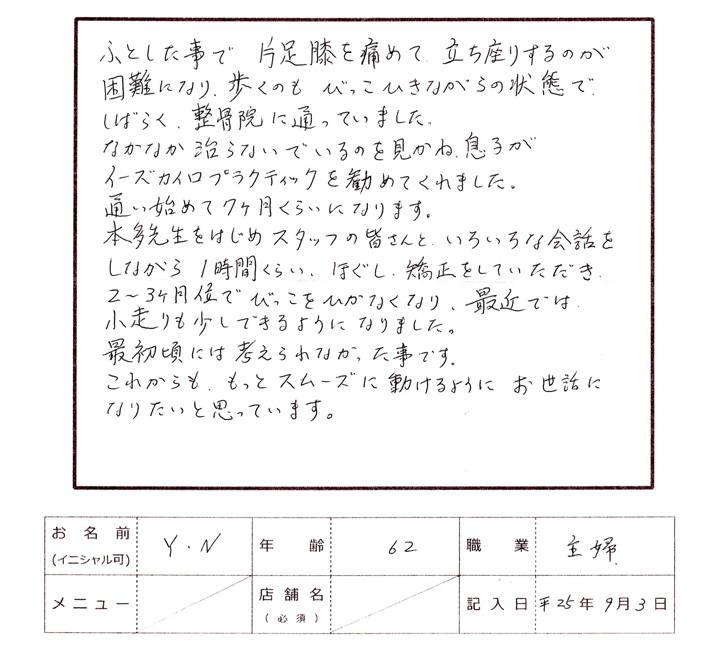 ふとした事で 片足膝を痛めて 立ち座りするのが
困難になり、歩くのも びっこひきながらの状態で
しばらく、整骨院に通っていました。
なかなか 治らないでいるのを見かね、息子が
イーズカイロプラクティックを勧めてくれました。
通い始めて 7ヶ月くらいになります。
本多先生をはじめ スタッフの皆さんと いろいろな会話を
しながら 1時間くらい、ほぐし、矯正をしていただき
2〜3ヶ月位で びっこをひかなくなり、最近では
小走りも少しできるようになりました。
最初頃には考えられなかった事です。
これからも、もっとスムーズに動けるように お世話に
なりたいと思っています。
お名前 (イニシャル可) Y・N 年齢 62 職業 主婦
メニュー 店舗名 (必須) 記入日 平25年 9月3日